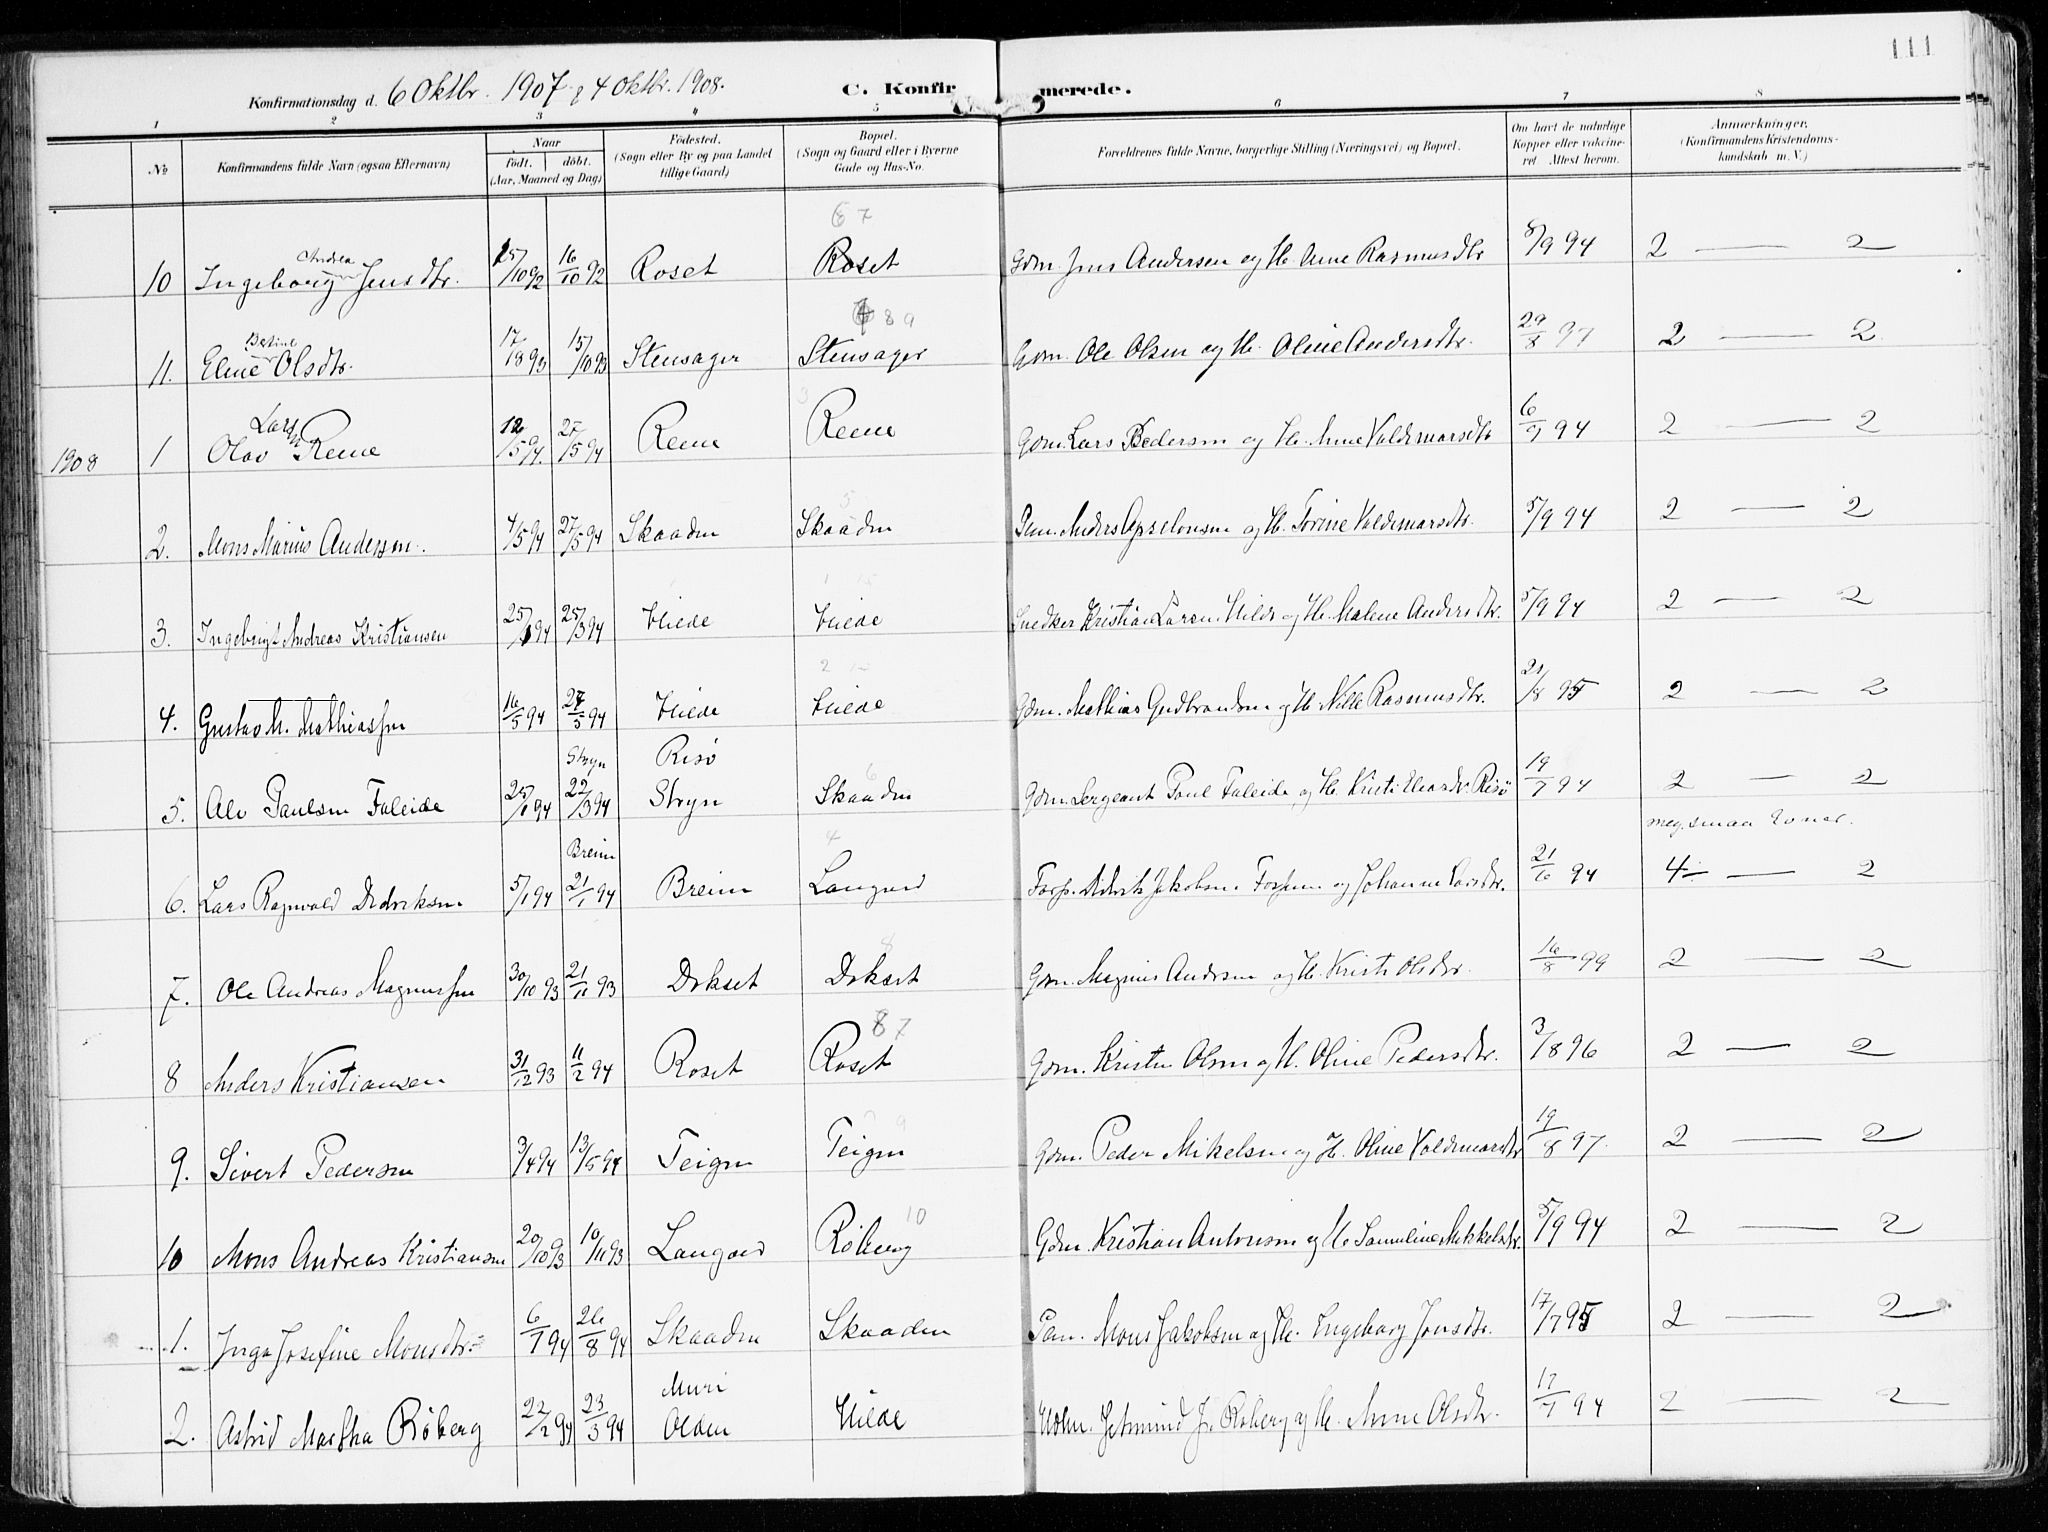 111
Konfirmationsdag d. 6 Oktbr. 1907 & 4 Oktbr. 1908. C. Konfirmerede.
1 2 3 4 5 6 7 8
No Konfirmandens fulde Navn (ogsaa Efternavn) Naar født. døbt. (Aar, Maaned og Dag) Födested. (Sogn eller By og paa Landet tillige Gaard) Bopæl. (Sogn og Gaard eller i Byerne Gade og Hus-No. Forældrenes fulde Navne, borgerlige Stilling (Næringsvei) og Bopæl. Om havt de naturlige Kopper eller vakcineret Attest herom. Anmærkninger. (Konfirmandens Kristendomskundskab m. V.)
6 7
10 Ingeborg Andrea Jensdtr. 15/10 92 16/10 92 Roset Roset Gdm. Jens Andersen og H. Anne Rasmusdtr 8/9 94 2 — 2
8 9
11. Eline Betine Olsdtr. 17/8 93 15/10 93 Stensager Stensager Gdm. Ole Olsen og H. Oline Andersdtr. 29/8 97 2 — 2.
3
1908 1 Olav Larsn Reme 12/5 94. 27/5 94 Reme Reme Gdm. Lars Pedersen og H. Anne Valdemarsdtr 6/9 94 2 — 2
5
2. Mons Marius Anderssen. 4/5 94 27/5 94 Skaaden Skaaden Anders Apselonsen og H. Torine Valdemarsdtr. 5/9 94 2 — 2
1
3. Ingebrigt Andreas Kristiansen 25/1 94 25/3 94 Hilde Hilde Snedker Kristian Larsen Hilde og H. Malene Andersdtr. 5/9 94 2 — 2
2
4. Gustav M. Mathiassen 16/5 94 27/5 94 Hilde Hilde Gdm. Mathias Gudbrandsen og H. Nille Rasmusdtr. 21/8 95 2 — 2
Stryn Risö 6
5. Alv Paulsen Faleide 25/1 94 22/3 94 Stryn Skaaden Gdm. Sergeant Paul Faleide og H. Kristi Risö 19/7 94 2 — 2
meg. smaa Evner.
Breim 4
6. Lars Ragnvald Didriksen 5/1 94 21/1 94 Breim Langvad Forp. Didrik Jakobsen Fossem og Johanne Larsdtr. 21/6 94 4- — 2
8
7. Ole Andreas Magnussen 30/10 93 21/11 93 Drkset Drkset Gdm. Magnus Andersen og H. Kristi Olsdtr. 16/8 99 2 — 2
8 7
8 Anders Kristiansen 31/12 93 11/2 94 Roset Roset Gdm. Kristen Olsen og H. Oline Pedersdtr. 3/8 96 2 — 2
9
9. Sivert Pedersen 3/4 94 13/5 94 Teigen Teigen Gdm. Peder Mikelsen og H. Oline Valdemarsdtr 19/8 97. 2 — 2
10
10 Mons Andreas Kristiansen 20/10 93 10/11 93 Langvad Röberg Gdm. Kristian Antonsen og H. Samueline Mikkelsdtr. 5/9 94 2 — 2
1. Inga Josefine Monsdtr. 6/7 94 26/8 94 Skaaden Skaaden Mons Jakobsen og H. Ingeborg Jonsdtr. 17/7 95 2 — 2
Muri
2. Astrid Martha Röberg 22/2 94 23/3 94 Olden Hilde Jetmund J. Röberg og H. Anne Olsdtr. 17/7 94 2 — 2